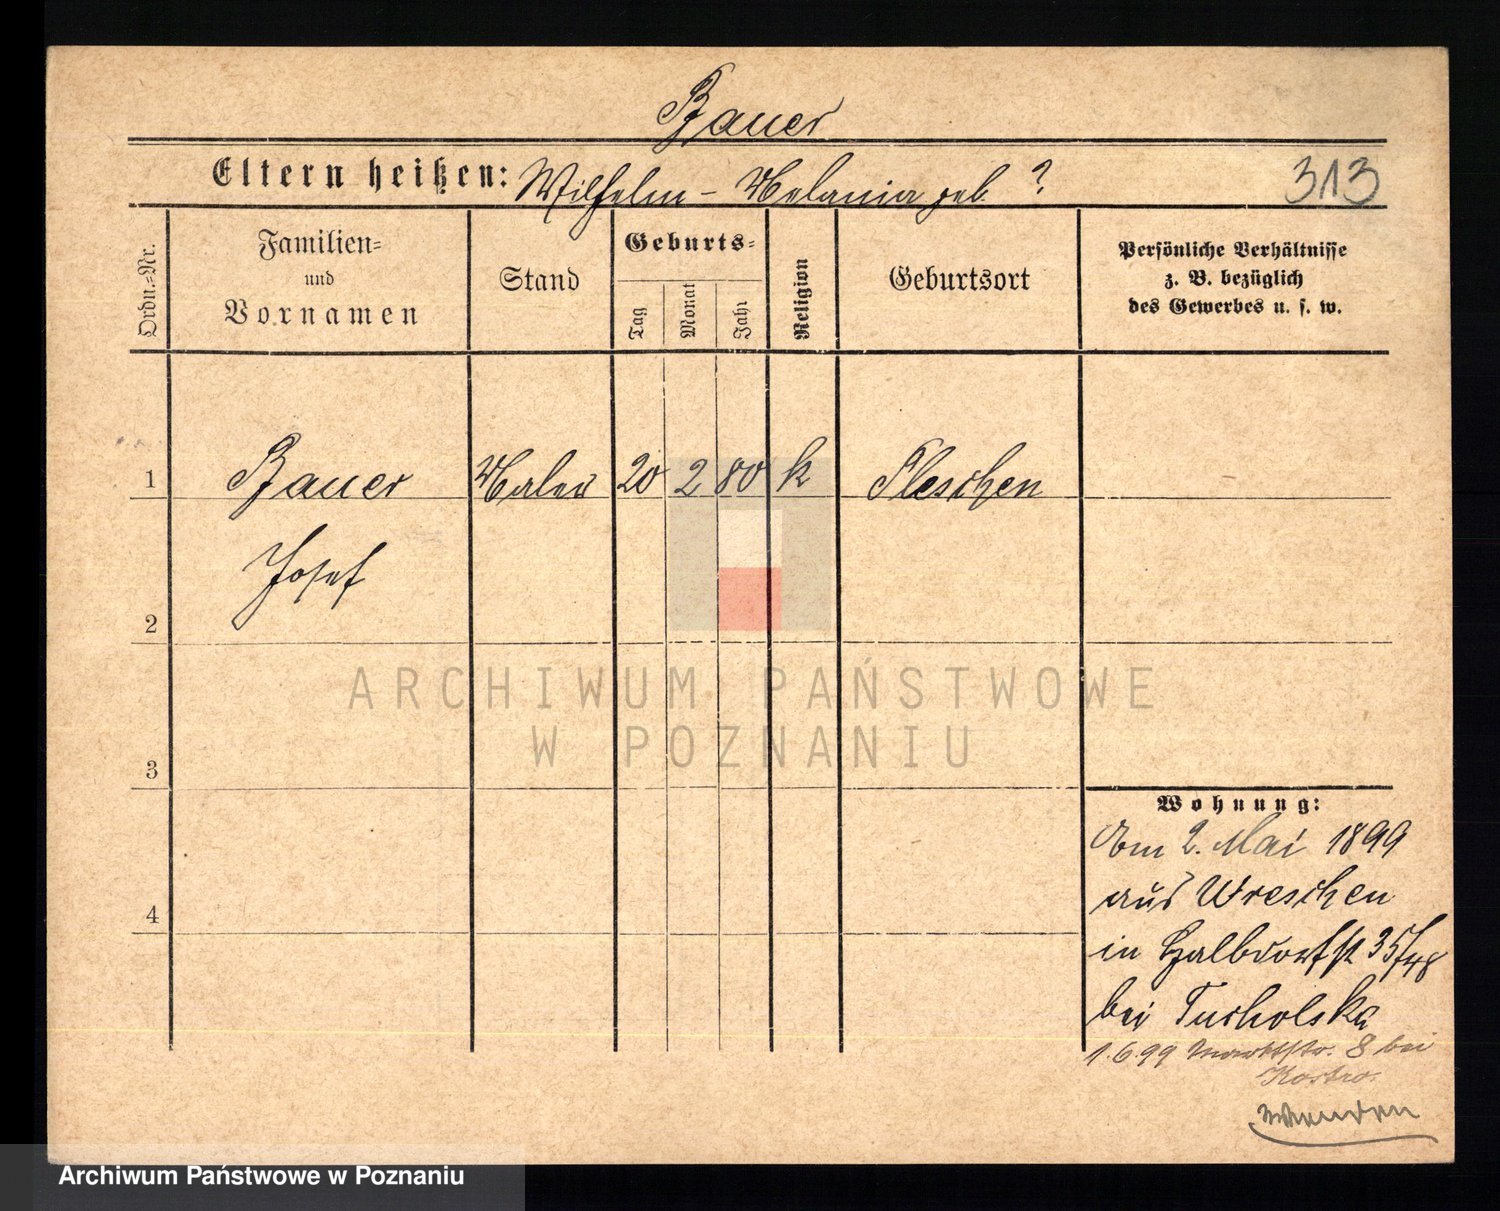 Bauer
Eltern heißen: Wilhelm - Melania geb. ?
313
Ordn.-Nr.
Familien-
und
Vornamen
Stand
Geburts-
Tag
Monat
Jahr
Religion
Geburtsort
Persönliche Verhältnisse
z. B. bezüglich
des Gewerbes u. s. w.
1 Bauer Maler 20 2 80 k Pleschen
Josef
2
ARCHIWUM PAŃSTWOWE
W POZNANIU
3
Wohnung:
Am 2. Mai 1899
aus Wreschen
4
in Halbdorfst 35/48
bei Tucholska
1.6.99 Marktstr. 8 bei
Kostro.
Wenden
Archiwum Państwowe w Poznaniu